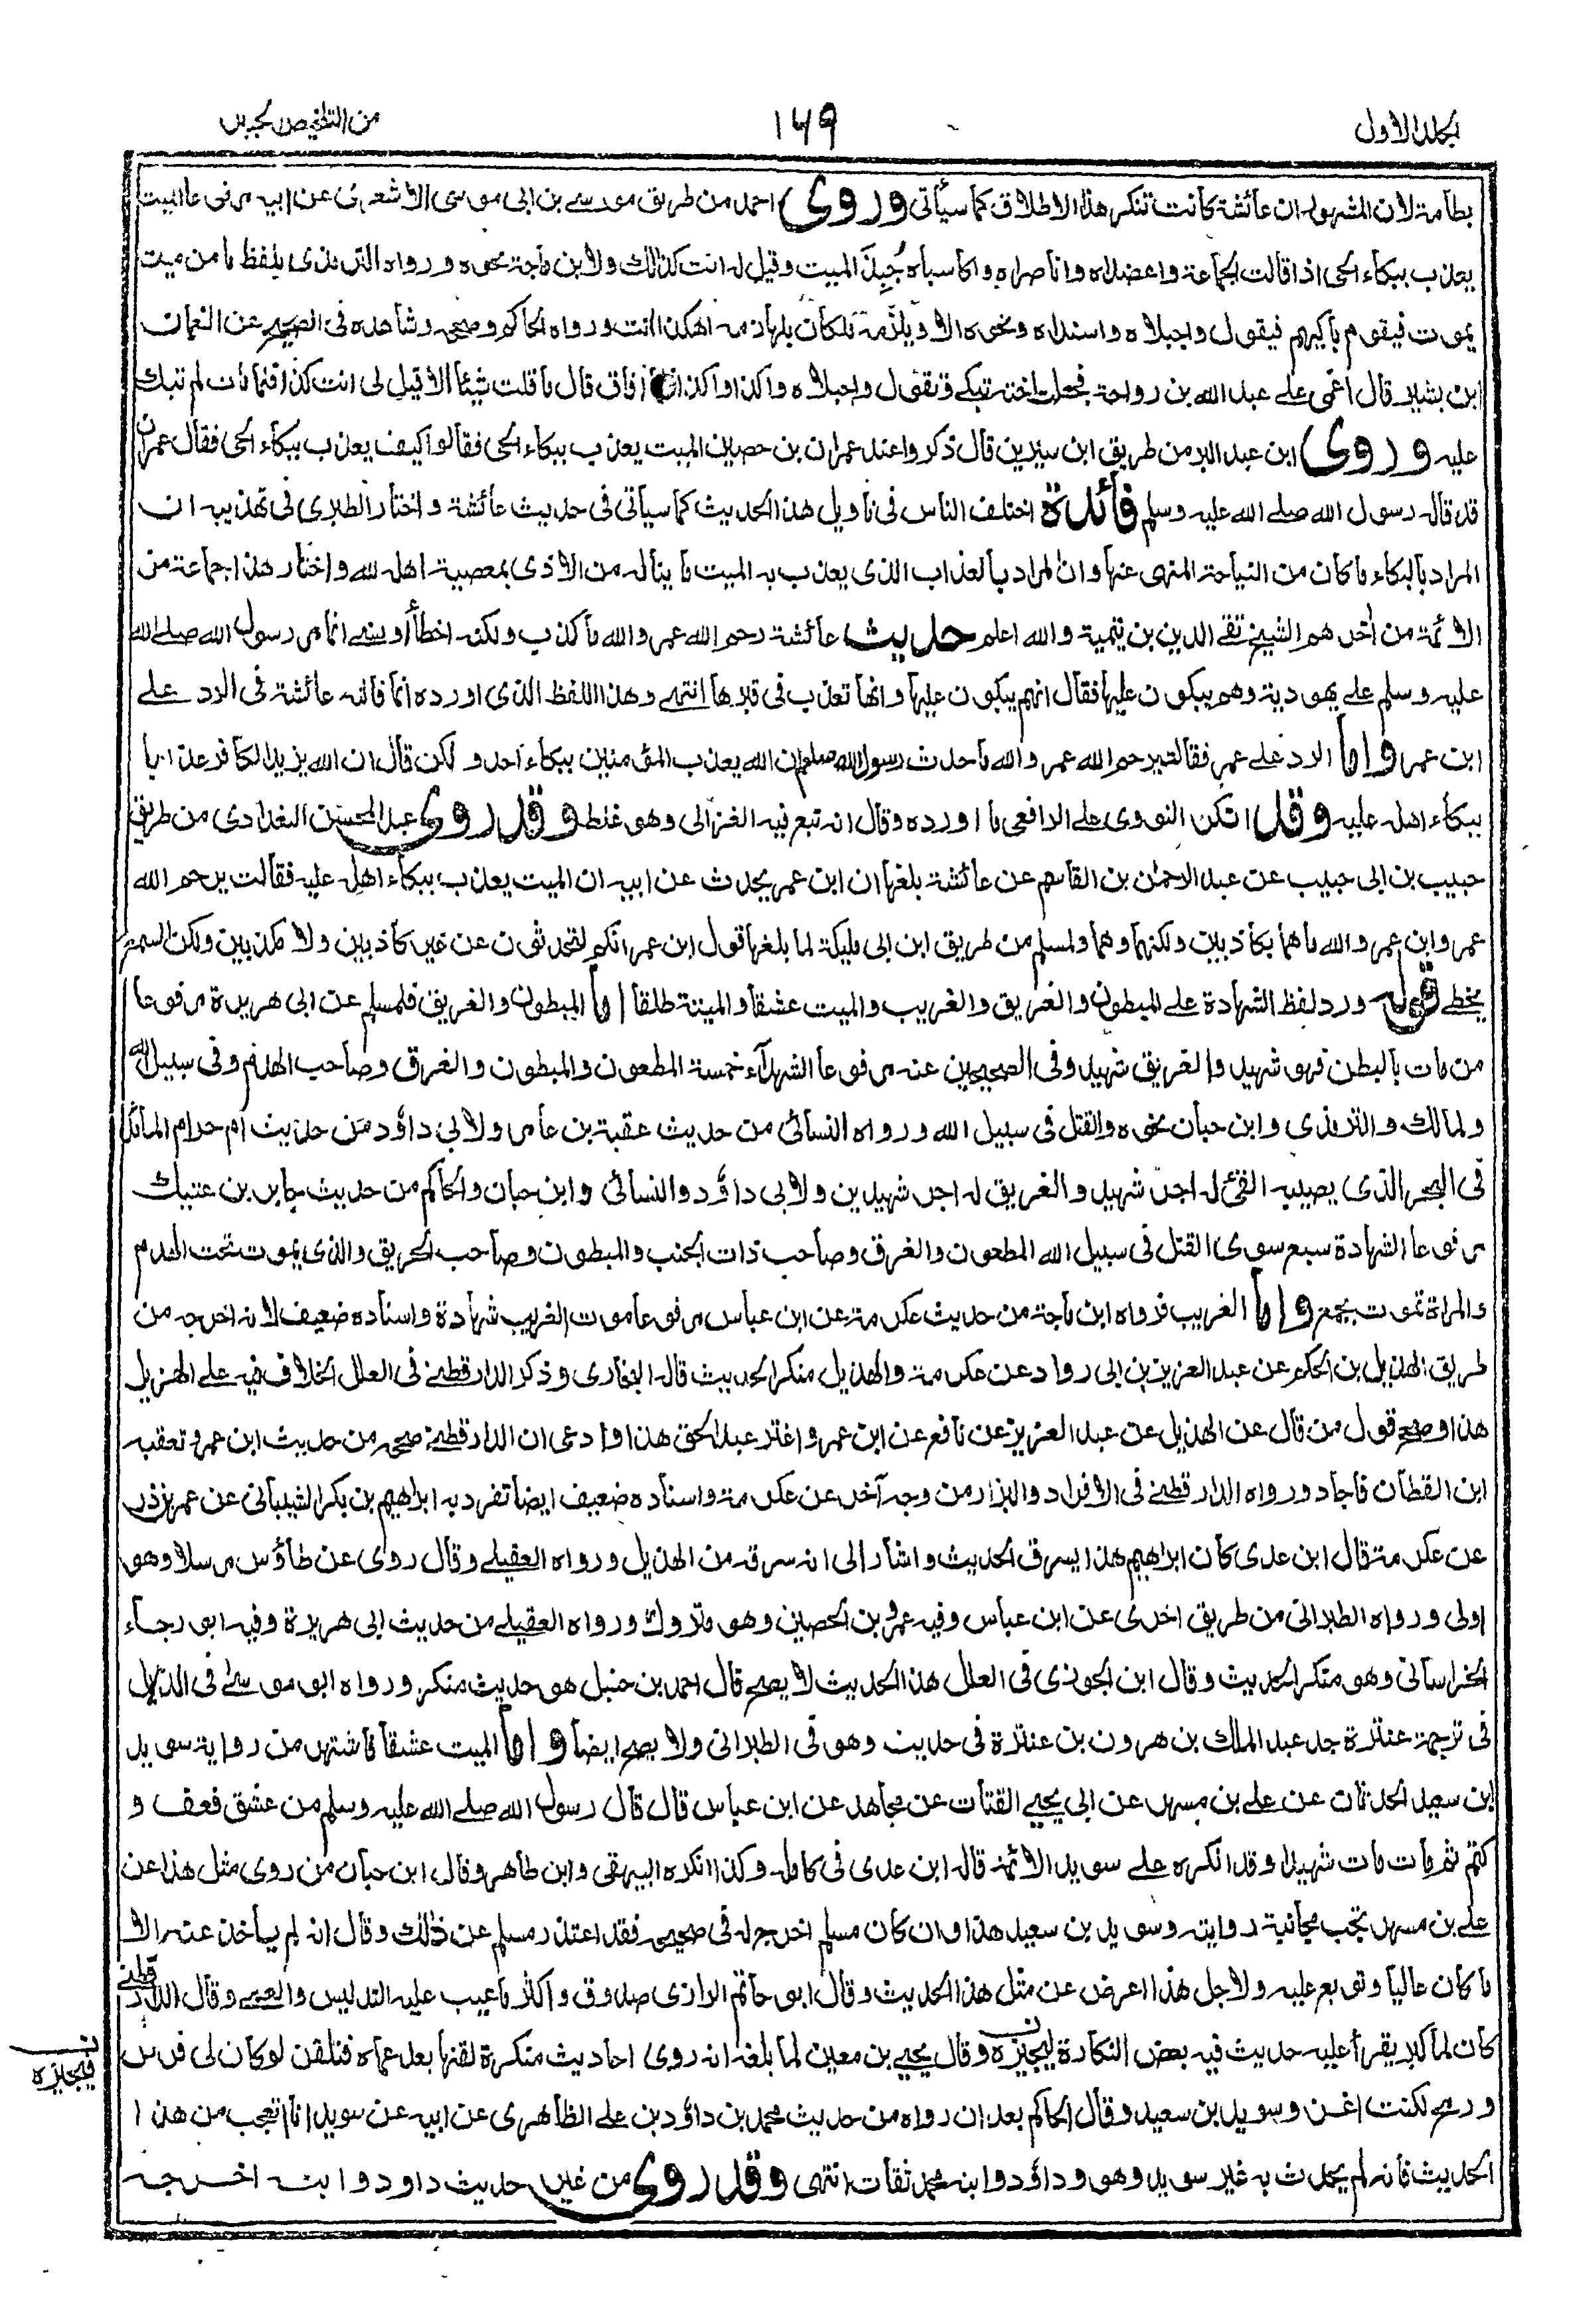 الجلد الاول
١٦٩
من التلخيص الحبير
بطامة لان المشهور ان عائشة كانت تنكر هذا الاطلاق كما سيأتي وروى احمد من طريق موسى بن ابي موسى الاشعرى عن ابيه مرفوعا الميت
يعذب ببكاء الحي اذا قالت الجماعة واعضداه وانا صراه واكاسباه جُبِذَ الميت وقيل له انت كذلك ولابن ماجة نحوه ورواه الترمذى بلفظ ما من ميت
يموت فيقوم باكيهم فيقول واجبلاه واسنداه ونحوه الا ويلزمه ملكان يلهزانه اهكذا انت ورواه الحاكم وصححه وشاهده في الصحيح عن النعمان
ابن بشير قال اغمى على عبد الله بن رواحة فجعلت اخته تبكى وتقول واجبلاه واكذا واكذا فلما افاق قال ما قلت شيئا الا قيل لي انت كذا فلما مات لم تبك
عليه وروى ابن عبد البر من طريق ابن سيرين قال ذكروا عند عمران بن حصين الميت يعذب ببكاء الحي فقالوا كيف يعذب ببكاء الحي فقال عمران
قد قاله رسول الله صلى الله عليه وسلم فائدة اختلف الناس في تاويل هذا الحديث كما سياتي في حديث عائشة واختار الطبرى في تهذيبه ان
المراد بالبكاء ما كان من النياحة المنهى عنها وان المراد بالعذاب الذى يعذب به الميت ما يناله من الاذى بمعصية اهله لله واختار هذا جماعة من
الائمة من اخرهم الشيخ تقى الدين بن تيمية والله اعلم حديث عائشة رحم الله عمر والله ما كذب ولكنه اخطأ او نسى انما مر رسول الله صلى الله
عليه وسلم على يهودية وهم يبكون عليها فقال انهم يبكون عليها وانها تعذب في قبرها انتهى وهذا اللفظ الذى اورده انما قالته عائشة في الرد على
ابن عمر واما الرد على عمر فقالت يرحم الله عمر والله ما حدث رسول الله صلعم ان الله يعذب المؤمنين ببكاء احد ولكن قال ان الله يزيد الكافر عذابا
ببكاء اهله عليه وقد انكر النووى على الرافعى ما اورده وقال انه تبع فيه الغزالى وهو غلط وقد روى عبد المحسن البغدادى من طريق
حبيب بن ابي حبيب عن عبد الرحمن بن القاسم عن عائشة بلغها ان ابن عمر يحدث عن ابيه ان الميت يعذب ببكاء اهله عليه فقالت يرحم الله
عمر وابن عمر والله ما هما بكاذبين ولكنهما وهما ولمسلم من طريق ابن ابي مليكة لما بلغها قول ابن عمر انكم لتحدثون عن غير كاذبين ولا مكذبين ولكن السمع
يخطى قوله ورد لفظ الشهادة على المبطون والغريق والغريب والميت عشقا والميتة طلقا اما المبطون والغريق فلمسلم عن ابي هريرة مرفوعا
من مات بالبطن فهو شهيد والغريق شهيد وفي الصحيحين عنه مرفوعا الشهداء خمسة المطعون والمبطون والغرق وصاحب الهدم وفي سبيل الله
ولمالك والترمذى وابن حبان نحوه والقتل في سبيل الله ورواه النسائى من حديث عقبة بن عامر ولابي داؤد من حديث ام حرام المائد
في البحر الذى يصيبه القئ له اجر شهيد والغريق له اجر شهيدين ولابي داؤد والنسائى وابن حبان والحاكم من حديث جابر بن عتيك
مرفوعا الشهادة سبع سوى القتل في سبيل الله المطعون والغرق وصاحب ذات الجنب والمبطون وصاحب الحريق والذى يموت تحت الهدم
والمراة تموت بجمع واما الغريب فرواه ابن ماجة من حديث عكرمة عن ابن عباس مرفوعا موت الغريب شهادة واسناده ضعيف لانه اخرجه من
طريق الهذيل بن الحكم عن عبد العزيز بن ابي رواد عن عكرمة والهذيل منكر الحديث قاله البخارى وذكر الدارقطنى في العلل الخلاف فيه على الهذيل
هذا وصحح قول من قال عن الهذيل عن عبد العزيز عن نافع عن ابن عمر واغتر عبد الحق هذا وادعى ان الدارقطنى صححه من حديث ابن عمر وتعقبه
ابن القطان فاجاد ورواه الدارقطنى في الافراد والبزار من وجه آخر عن عكرمة واسناده ضعيف ايضا تفرد به ابراهيم بن بكر الشيبانى عن عمر بن ذر
عن عكرمة قال ابن عدى كان ابراهيم هذا يسرق الحديث واشار الى انه سرقه من الهذيل ورواه العقيلى وقال روى عن طاؤس مرسلا وهو
اولى ورواه الطبرانى من طريق اخرى عن ابن عباس وفيه عمرو بن الحصين وهو متروك ورواه العقيلى من حديث ابي هريرة وفيه ابو رجاء
الخراسانى وهو منكر الحديث وقال ابن الجوزى في العلل هذا الحديث لا يصح قال احمد بن حنبل هو حديث منكر ورواه ابو موسى في الذيل
في ترجمة عنترة جد عبد الملك بن هرون بن عنترة في حديث وهو في الطبرانى ولا يصح ايضا واما الميت عشقا فاشتهر من رواية سويد
ابن سعيد الحدثانى عن على بن مسهر عن ابي يحيى القتات عن مجاهد عن ابن عباس قال قال رسول الله صلى الله عليه وسلم من عشق فعف و
كتم ثم مات مات شهيدا وقد انكره على سويد الائمة قاله ابن عدى في كامله وكذا انكره البيهقى وابن طاهر وقال ابن حبان من روى مثل هذا عن
على بن مسهر تجب مجانبة روايته وسويد بن سعيد هذا وان كان مسلم اخرج له في صحيحه فقد اعتذر مسلم عن ذلك وقال انه لم يأخذ عنه الا
ما كان عاليا وتوبع عليه ولاجل هذا اعرض عن مثل هذا الحديث وقال ابو حاتم الرازى صدوق واكثر ما عيب عليه التدليس والعمى وقال الدارقطنى
كان لما كبر يقرأ عليه حديث فيه بعض النكارة ليجيزه وقال يحيى بن معين لما بلغه انه روى احاديث منكرة لقنها بعد عماه فتلقن لو كان لى فرس
ن
فيجيزه
ورمح لكنت اغزو سويد بن سعيد وقال الحاكم بعد ان رواه من حديث محمد بن داؤد بن على الظاهرى عن ابيه عن سويد انا اتعجب من هذا
الحديث فانه لم يحدث به غير سويد وهو وداؤد وابنه محمد ثقات انتهى وقد روى من غير حديث داود وابنه اخرجه